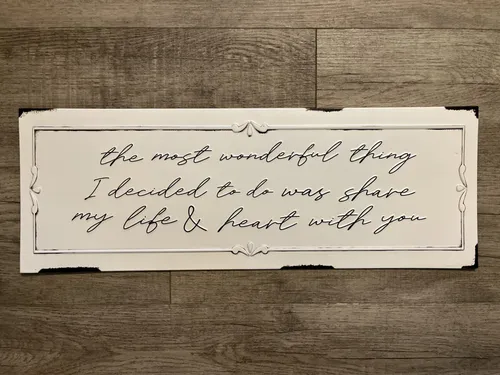 the most wonderful thing
I decided to do was share
my life & heart with you